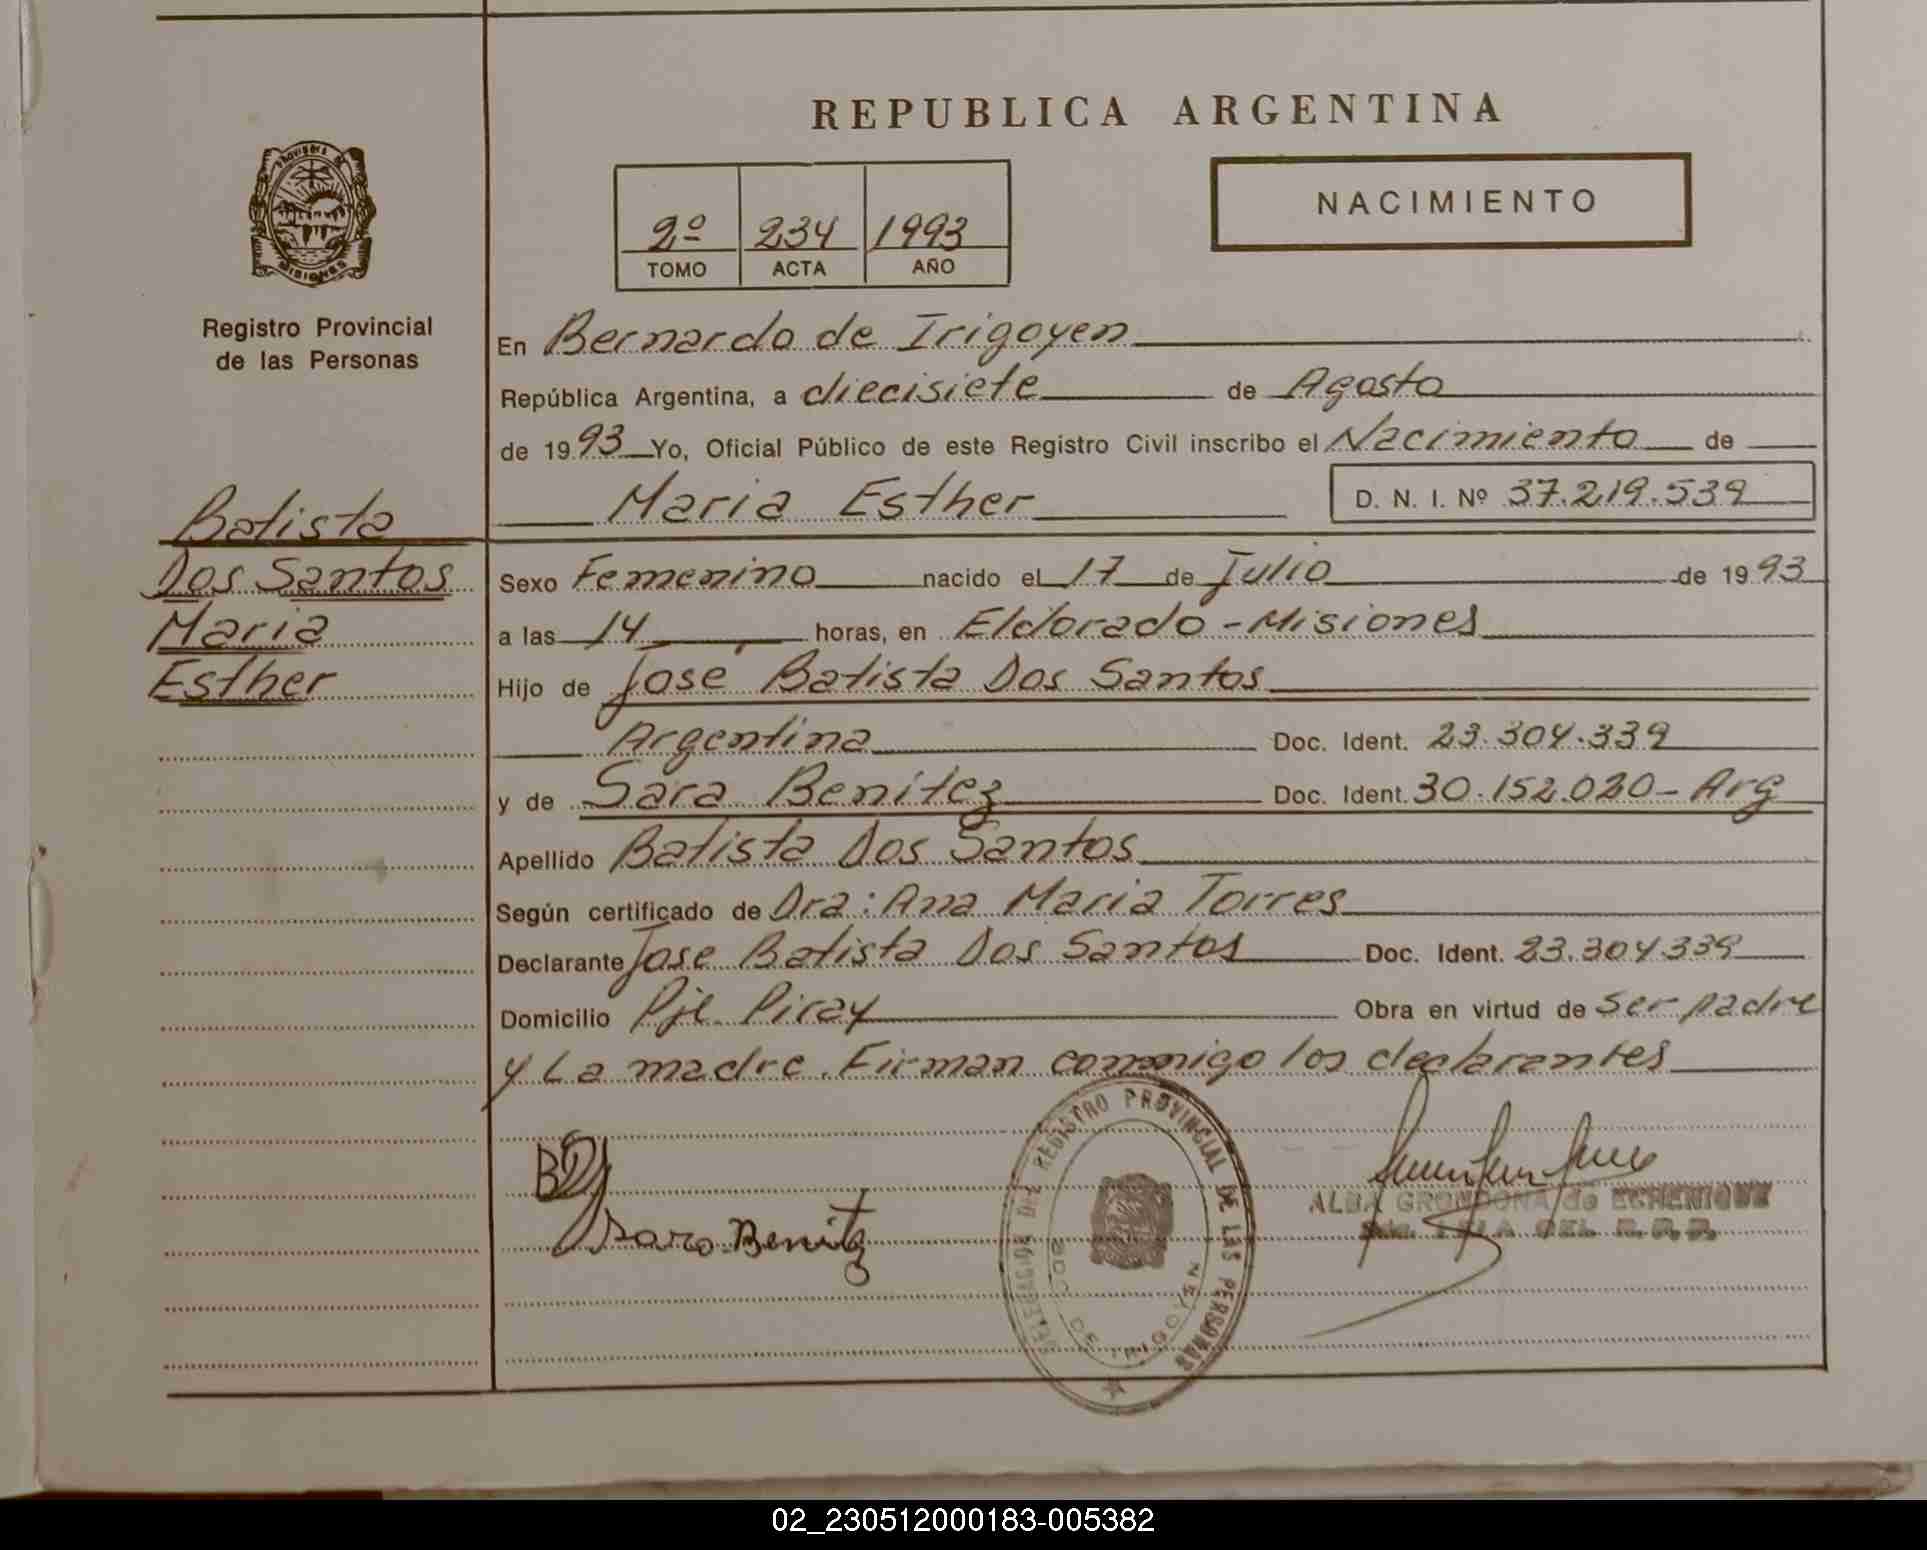 REPUBLICA ARGENTINA
PROVINCIA DE
MISIONES
2º 234 1993
TOMO ACTA AÑO
NACIMIENTO
Registro Provincial
de las Personas
En Bernardo de Irigoyen
República Argentina, a diecisiete de Agosto
de 1993 Yo, Oficial Público de este Registro Civil inscribo el Nacimiento de
Maria Esther D. N. I. Nº 37.219.539
Batista
Dos Santos
Maria
Esther
Sexo Femenino nacido el 17 de Julio de 1993
a las 14 horas, en Eldorado - Misiones
Hijo de José Batista Dos Santos
Argentina Doc. Ident. 23.304.339
y de Sara Benítez Doc. Ident. 30.152.020 - Arg
Apellido Batista Dos Santos
Según certificado de Dra: Ana Maria Torres
Declarante Jose Batista Dos Santos Doc. Ident. 23.304.339
Domicilio Pje Piray Obra en virtud de ser padre
y La madre. Firman conmigo los declarantes
BDS
Sara Benitz
DELEGACION DEL REGISTRO PROVINCIAL DE LAS PERSONAS
BDO DE IRIGOYEN
ALBA GRONDONA de ECHENIQUE
DEL R.P.P.
02_230512000183-005382